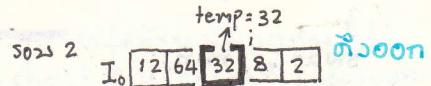 temp = 32
รอบ 2 I₀ 12 64 32 i 8 2 ดึงออก